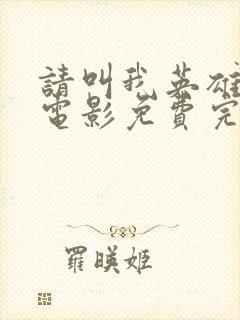 請叫我英雄
電影免費完
羅暎姬